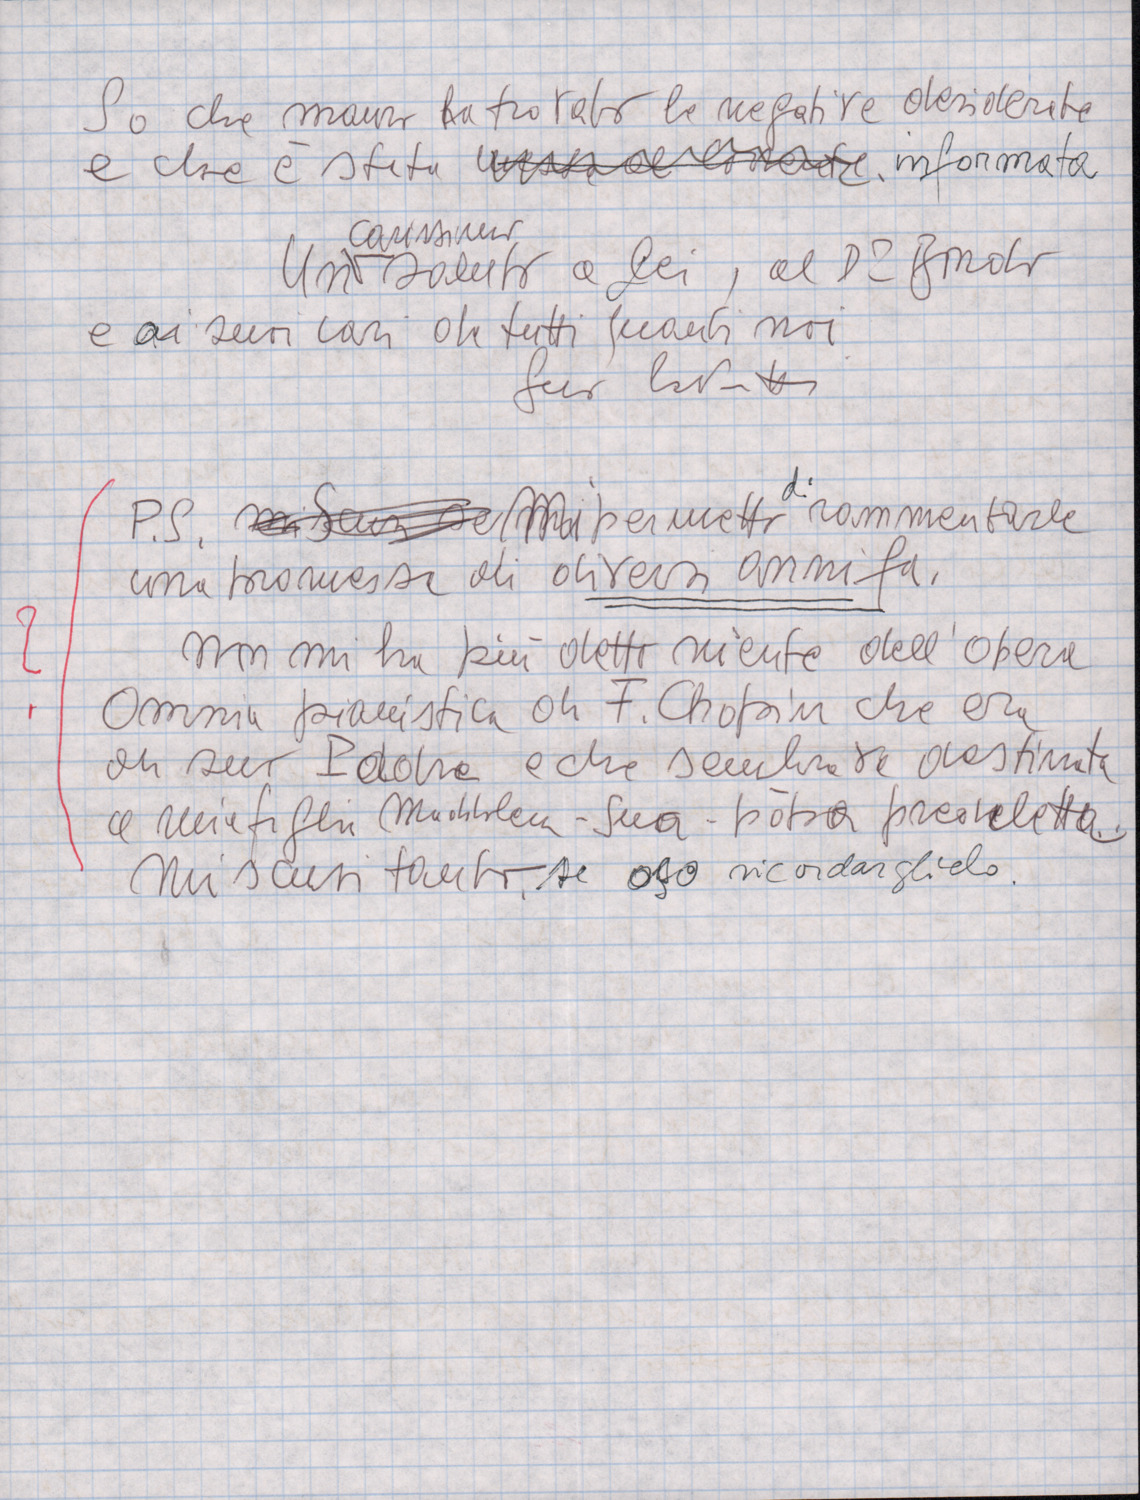 So che mauro ha trovato le negative desiderate
e che è stata informata
carissimo
Un saluto a Lei, al Dr
e ai suoi cari da tutti quanti noi
Suo
P.S. Mi permetto di rammentarle
una promessa di diversi anni fa.
non mi ha più detto niente dell'opera
Omnia pianistica di F. Chopin che era
di suo Padre e che sembrava destinata
a mia figlia Maddalena - Sua - prediletta.
Mi scusi tanto, se oso ricordarglielo.
?